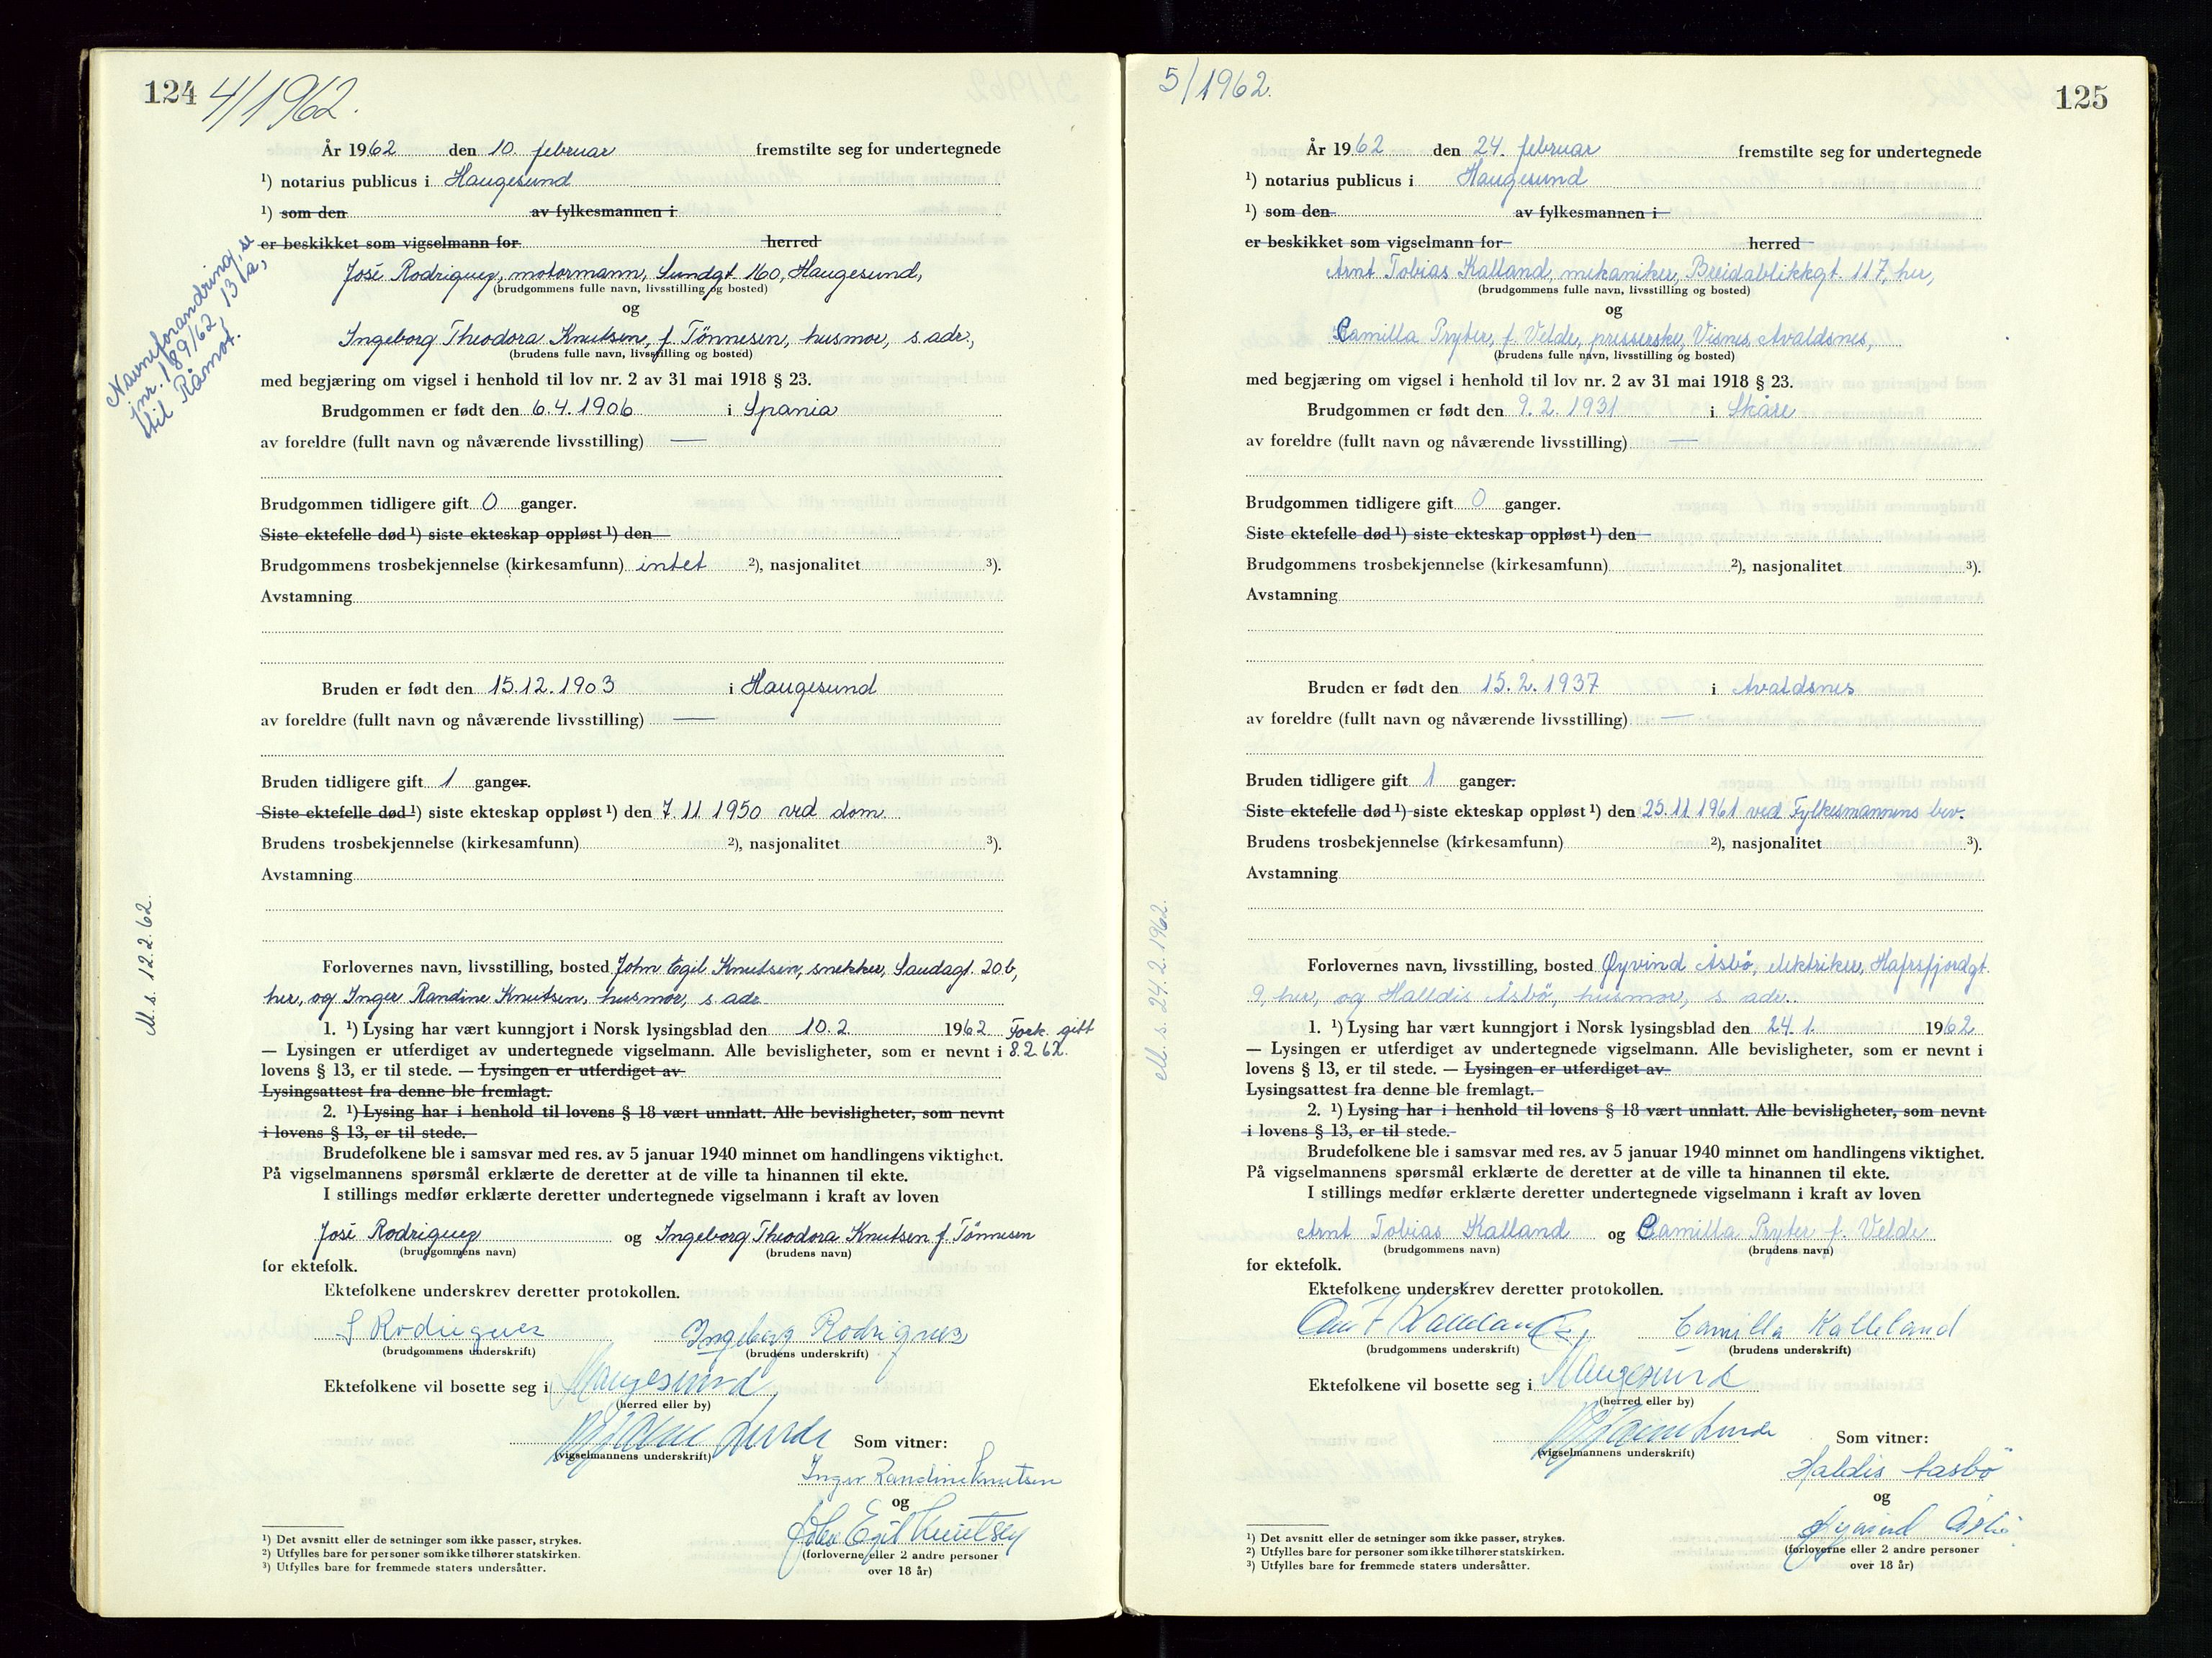 124 4/1962.
År 1962 den 10. februar fremstilte seg for undertegnede
¹) notarius publicus i Haugesund
¹) som den av fylkesmannen i
er beskikket som vigselmann for herred
Navneforandring, se
jnr. 189/62, 131a,
til Råmot.
José Rodriguez, motormann, Sundgt. 160, Haugesund,
(brudgommens fulle navn, livsstilling og bosted)
og
Ingeborg Theodora Knutsen, f. Tönnesen, husmor, s. adr.,
(brudens fulle navn, livsstilling og bosted)
med begjæring om vigsel i henhold til lov nr. 2 av 31 mai 1918 § 23.
Brudgommen er født den 6.4.1906 i Spania
av foreldre (fullt navn og nåværende livsstilling) —
Brudgommen tidligere gift 0 ganger.
Siste ektefelle død ¹) siste ekteskap oppløst ¹) den
Brudgommens trosbekjennelse (kirkesamfunn) intet ²), nasjonalitet ³).
Avstamning
Bruden er født den 15.12.1903 i Haugesund
av foreldre (fullt navn og nåværende livsstilling) —
Bruden tidligere gift 1 ganger.
Siste ektefelle død ¹) siste ekteskap oppløst ¹) den 7.11.1950 ved dom.
Brudens trosbekjennelse (kirkesamfunn) ²), nasjonalitet ³).
Avstamning
M.s. 12.2.62.
Forlovernes navn, livsstilling, bosted John Egil Knutsen, snekker, Saudagt. 20b,
her, og Inger Randine Knutsen, husmor, s. adr.
1. ¹) Lysing har vært kunngjort i Norsk lysingsblad den 10.2 1962 Fork. gitt
— Lysingen er utferdiget av undertegnede vigselmann. Alle bevisligheter, som er nevnt i 8.2.62.
lovens § 13, er til stede. — Lysingen er utferdiget av
Lysingsattest fra denne ble fremlagt.
2. ¹) Lysing har i henhold til lovens § 18 vært unnlatt. Alle bevisligheter, som nevnt
i lovens § 13, er til stede.
Brudefolkene ble i samsvar med res. av 5 januar 1940 minnet om handlingens viktighet.
På vigselmannens spørsmål erklærte de deretter at de ville ta hinannen til ekte.
I stillings medfør erklærte deretter undertegnede vigselmann i kraft av loven
José Rodriguez og Ingeborg Theodora Knutsen f. Tönnesen
(brudgommens navn) (brudens navn)
for ektefolk.
Ektefolkene underskrev deretter protokollen.
J Rodriguez Ingeborg Rodriguez
(brudgommens underskrift) (brudens underskrift)
Ektefolkene vil bosette seg i Haugesund
(herred eller by)
Som vitner:
(vigselmannens underskrift)
Inger Randine Knutsen
og
John Egil Knutsen
(forloverne eller 2 andre personer
over 18 år)
¹) Det avsnitt eller de setninger som ikke passer, strykes.
²) Utfylles bare for personer som ikke tilhører statskirken.
³) Utfylles bare for fremmede staters undersåtter.
5/1962. 125
År 1962 den 24. februar fremstilte seg for undertegnede
¹) notarius publicus i Haugesund
¹) som den av fylkesmannen i
er beskikket som vigselmann for herred
Arnt Tobias Kalland, mekaniker, Breidablikkgt. 117, her,
(brudgommens fulle navn, livsstilling og bosted)
og
Camilla Pryter, f. Velde, presserske, Visnes Avaldsnes,
(brudens fulle navn, livsstilling og bosted)
med begjæring om vigsel i henhold til lov nr. 2 av 31 mai 1918 § 23.
Brudgommen er født den 9.2.1931 i Skåre
av foreldre (fullt navn og nåværende livsstilling) —
Brudgommen tidligere gift 0 ganger.
Siste ektefelle død ¹) siste ekteskap oppløst ¹) den
Brudgommens trosbekjennelse (kirkesamfunn) ²), nasjonalitet ³).
Avstamning
Bruden er født den 15.2.1937 i Avaldsnes
av foreldre (fullt navn og nåværende livsstilling) —
Bruden tidligere gift 1 ganger.
Siste ektefelle død ¹) siste ekteskap oppløst ¹) den 25.11.1961 ved Fylkesmannens bev.
Brudens trosbekjennelse (kirkesamfunn) ²), nasjonalitet ³).
Avstamning
M.s. 24.2.1962.
Forlovernes navn, livsstilling, bosted Øyvind Åsbö, elektriker, Hafrsfjordgt.
9, her, og Halldis Åsbö, husmor, s. adr.
1. ¹) Lysing har vært kunngjort i Norsk lysingsblad den 24.1. 1962
— Lysingen er utferdiget av undertegnede vigselmann. Alle bevisligheter, som er nevnt i
lovens § 13, er til stede. — Lysingen er utferdiget av
Lysingsattest fra denne ble fremlagt.
2. ¹) Lysing har i henhold til lovens § 18 vært unnlatt. Alle bevisligheter, som nevnt
i lovens § 13, er til stede.
Brudefolkene ble i samsvar med res. av 5 januar 1940 minnet om handlingens viktighet.
På vigselmannens spørsmål erklærte de deretter at de ville ta hinannen til ekte.
I stillings medfør erklærte deretter undertegnede vigselmann i kraft av loven
Arnt Tobias Kalland og Camilla Pryter f. Velde
(brudgommens navn) (brudens navn)
for ektefolk.
Ektefolkene underskrev deretter protokollen.
Camilla Kalleland
(brudgommens underskrift) (brudens underskrift)
Ektefolkene vil bosette seg i Haugesund
(herred eller by)
Som vitner:
(vigselmannens underskrift)
Haldis Aasbö
og
Øyvind Åsbö
(forloverne eller 2 andre personer
over 18 år)
¹) Det avsnitt eller de setninger som ikke passer, strykes.
²) Utfylles bare for personer som ikke tilhører statskirken.
³) Utfylles bare for fremmede staters undersåtter.